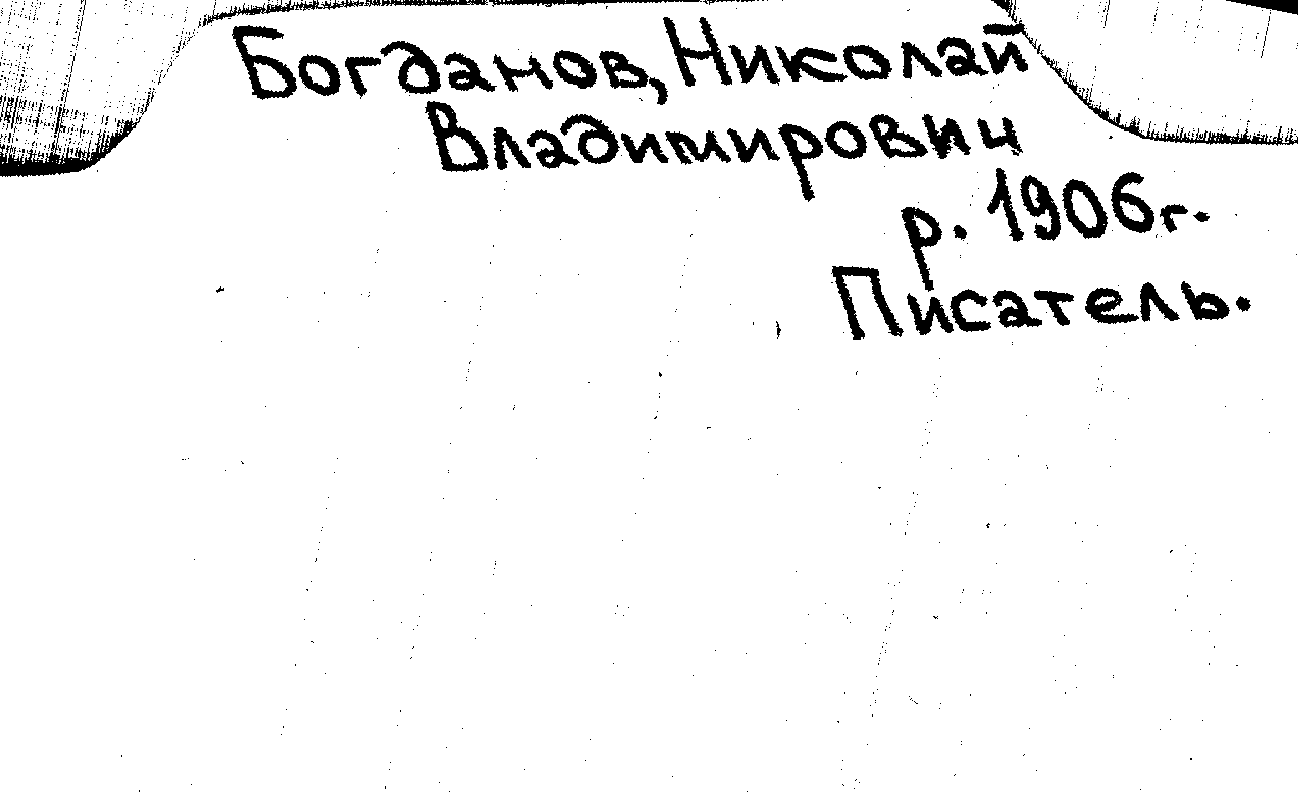 Богданов, Николай
Владимирович
р. 1906г.
Писатель.